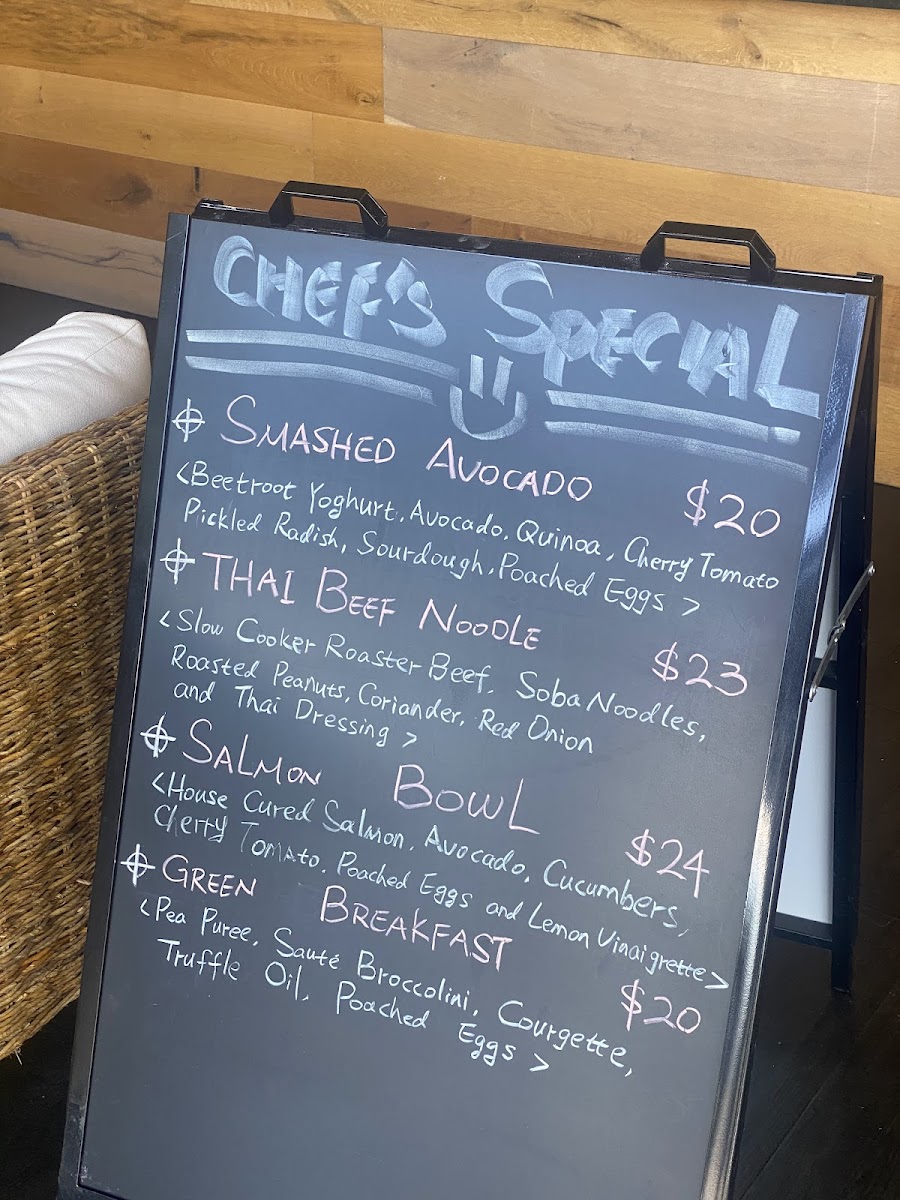 CHEF'S SPECIAL
SMASHED AVOCADO $20
<Beetroot Yoghurt, Avocado, Quinoa, Cherry Tomato
Pickled Radish, Sourdough, Poached Eggs >
THAI BEEF NOODLE $23
<Slow Cooker Roaster Beef, Soba Noodles,
Roasted Peanuts, Coriander, Red Onion
and Thai Dressing >
SALMON BOWL $24
<House Cured Salmon, Avocado, Cucumbers,
Cherry Tomato, Poached Eggs and Lemon Vinaigrette>
GREEN BREAKFAST $20
<Pea Puree, Sauté Broccolini, Courgette,
Truffle Oil, Poached Eggs >